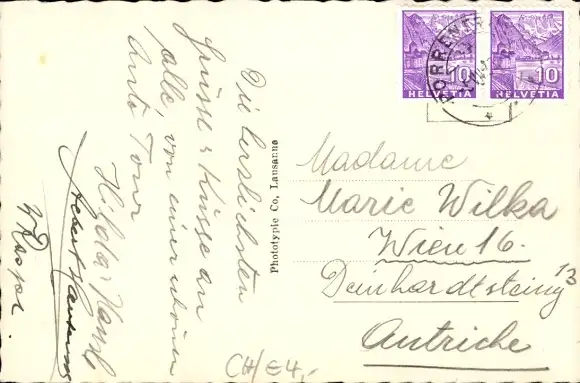 Die herzlichsten
Grüsse & Küsse an
alle, von einer schönen
Auto Tour
Hilda & Hansl
Phototypie Co, Lausanne
10
HELVETIA
10
HELVETIA
Madame
Marie Wilka
Wien 16.
Deinhardtsteing 13
Autriche
CH/E4,-